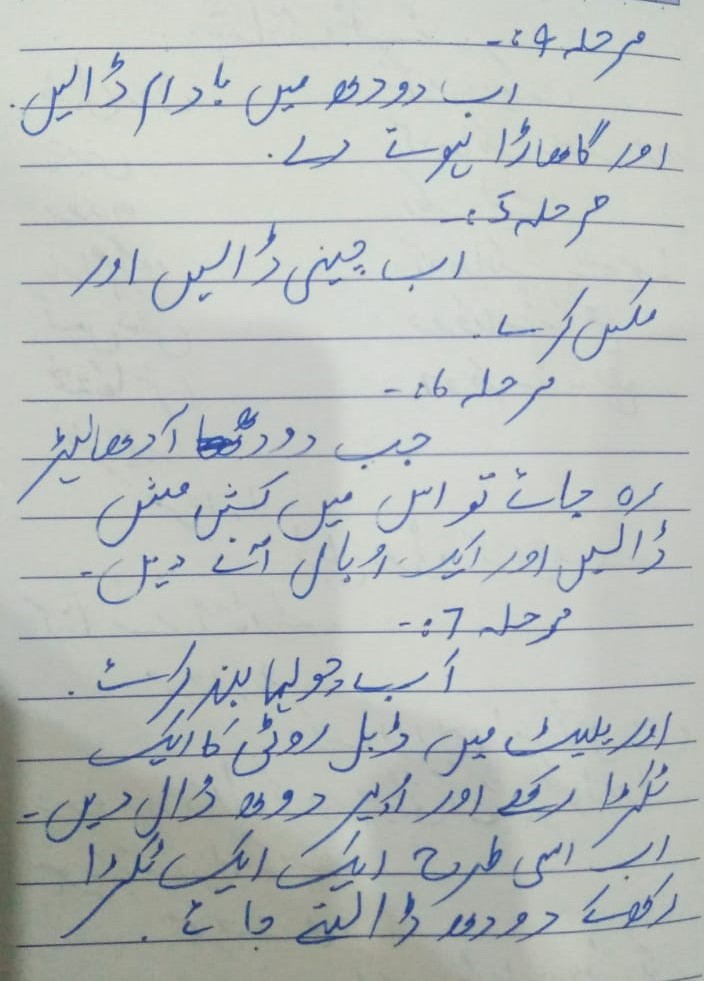 مرحلہ 4:-
اب دودھ میں بادام ڈالیں.
اور گاھاڑا ہوتے دے.
مرحلہ 5:-
اب چینی ڈالیں اور
مکس کرے.
مرحلہ 6:-
جب دودھ آدھا لیٹر
رہ جائے تو اس میں کش مش
ڈالیں اور ایک اوبال آنے دیں-
مرحلہ 7:-
اب چولہا بند کرئے.
اور پلیٹ میں ڈبل روٹی کا ایک
ٹکردا رکھے اور اُپر دودھ ڈال دیں-
اب اسی طرح ایک ایک ٹکردا
رکھکے دودھ ڈالتے جائے.